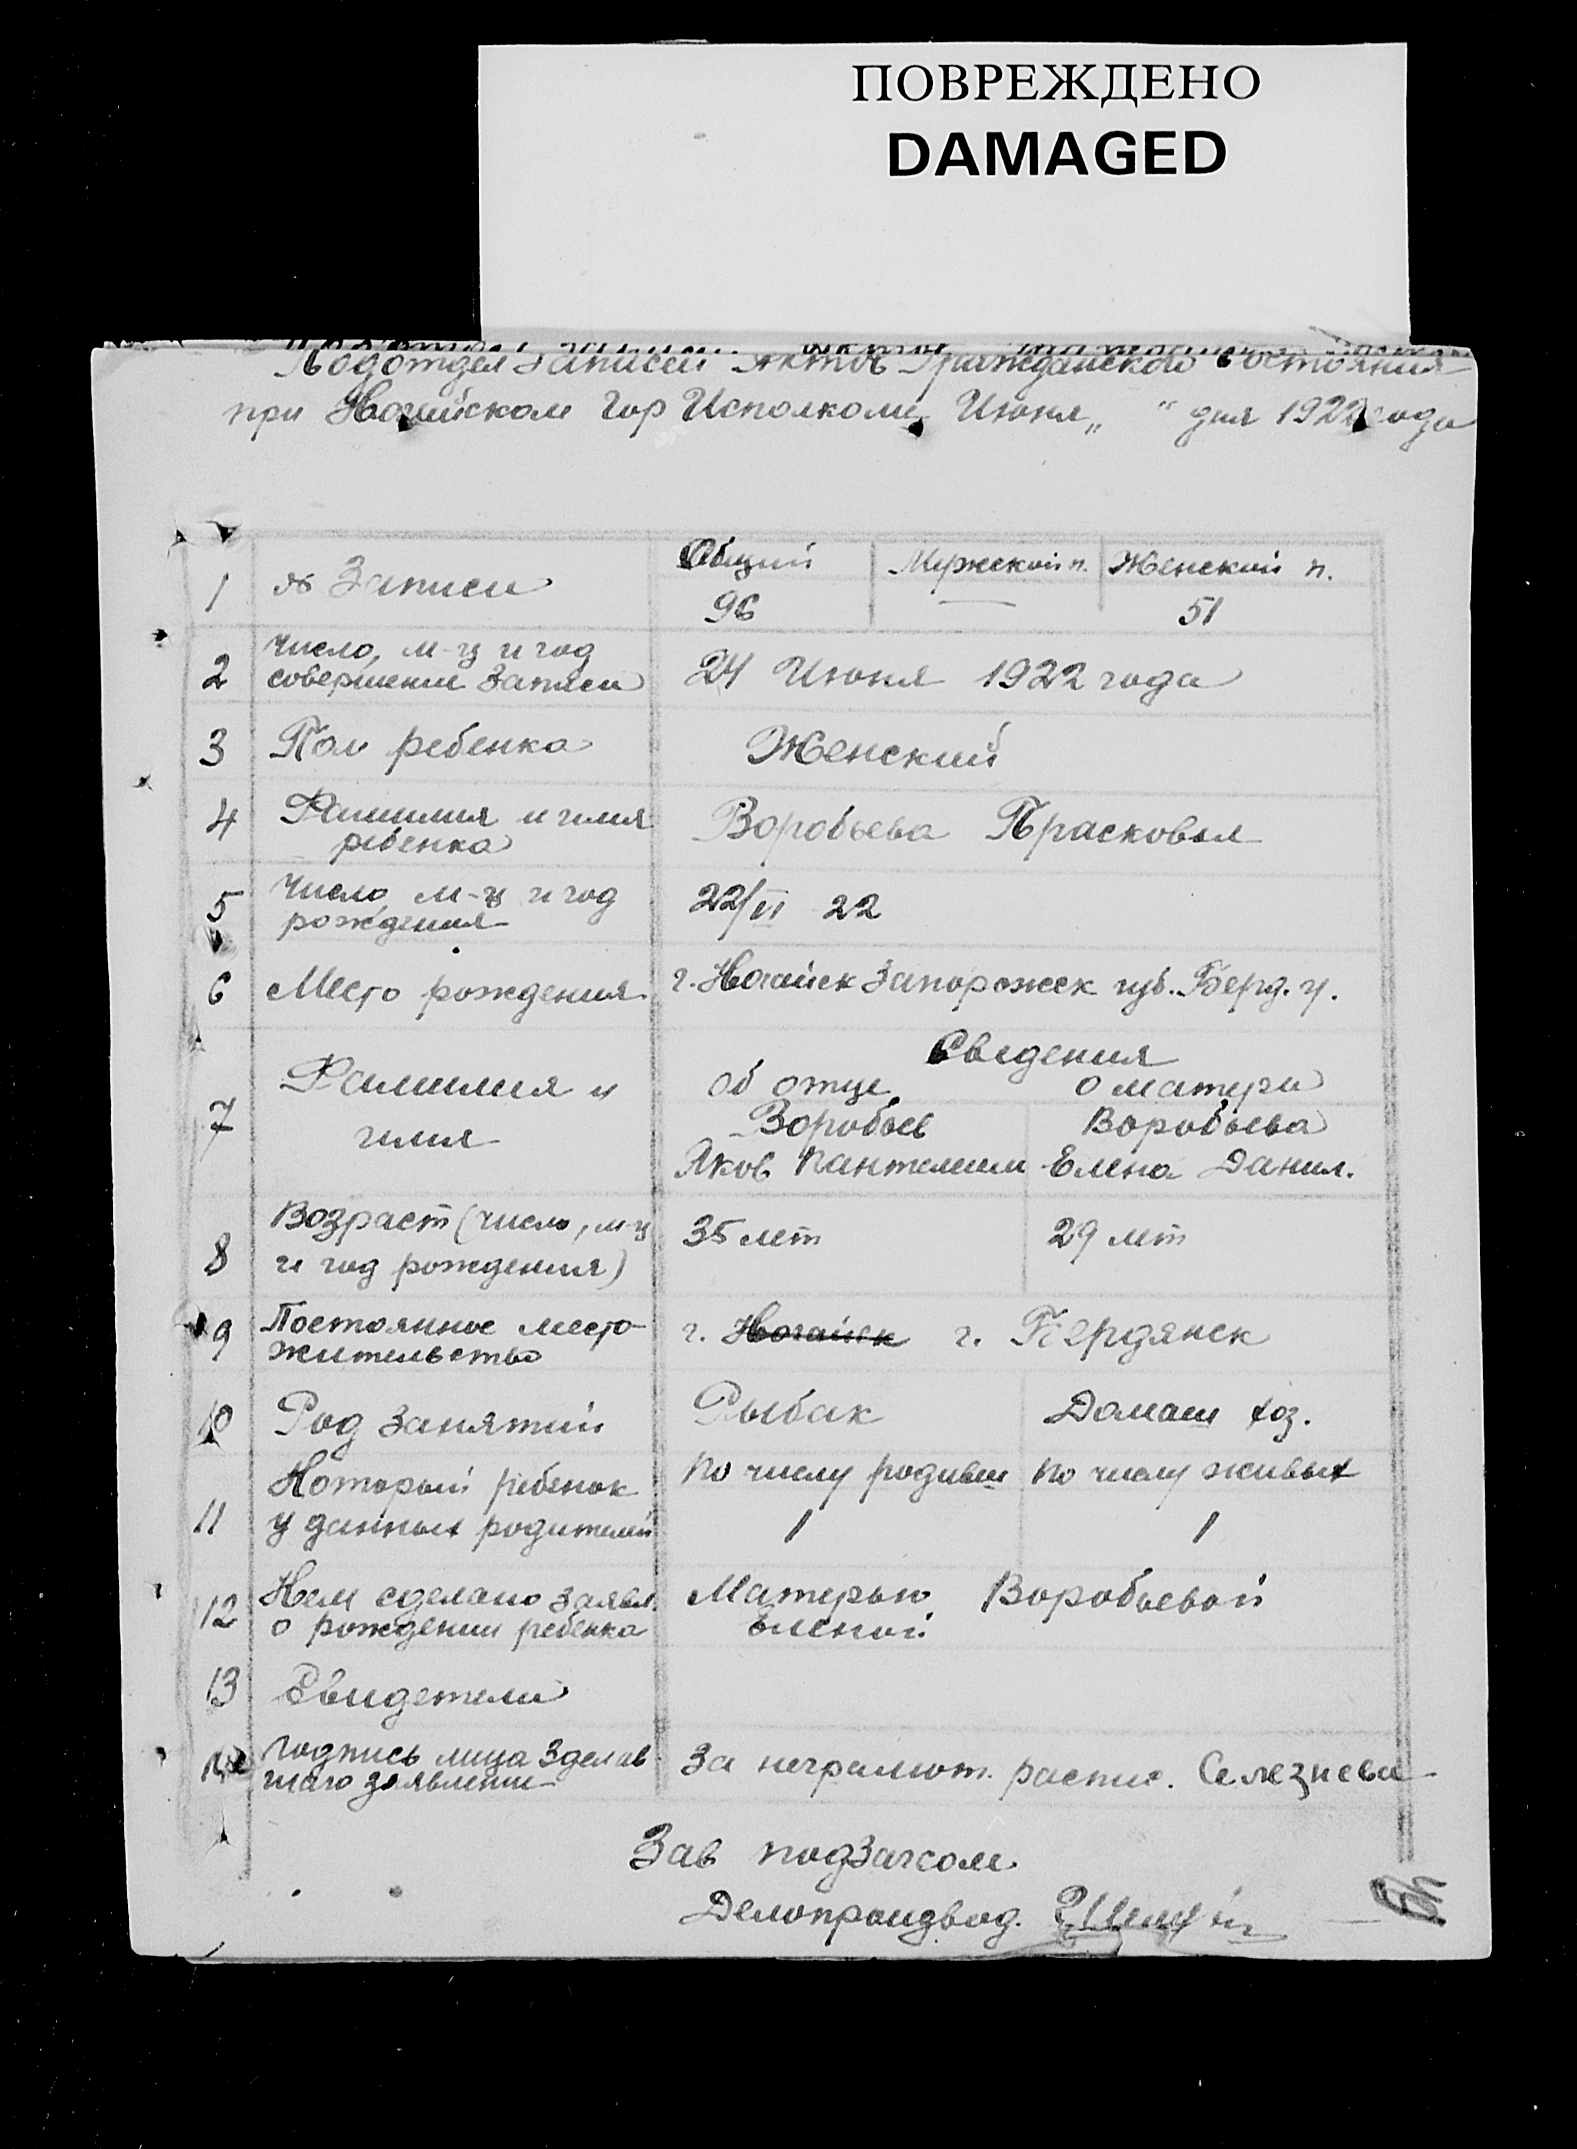 ПОВРЕЖДЕНО
DAMAGED
Подотдел Записей Актов Гражданского Состояния
при Ногайском Гор Исполкоме Июня „ “ дня 1922 года
1 № Записи Общий Мужской п. Женский п.
96 — 51
2 Число, м-ц и год
совершения Записи 24 Июня 1922 года
3 Пол ребенка Женский
4 Фамилия и имя
ребенка Воробьева Прасковья
5 Число, м-ц и год
рождения 22/VI 22
6 Место рождения г. Ногайск Запорожск губ. Берд. у.
Сведения
7 Фамилия и об отце о матери
имя Воробьев Воробьева
Яков Пантелеим Елена Данил.
8 Возраст (число, м-ц
и год рождения) 35 лет 29 лет
9 Постоянное место
жительство г. Ногайск г. Бердянск
10 Род занятий Рыбак Домаш хоз.
11 Который ребенок По числу родивш По числу живых
у данных родителей 1 1
12 Кем сделано заявл. Матерью Воробьевой
о рождении ребенка Еленой
13 Свидетели
14 Подпись лица Зделав
шаго заявление За неграмот. распис. Селезнева
Зав подзагсом
Делопроизвод.